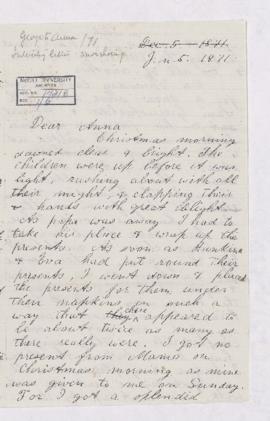 George to Anna /71
McGILL UNIVERSITY
ARCHIVES
ACC. NO.
REF.
Dec. 5 - 1871
Jan. 5. 1871
Dear Anna
Christmas morning
dawned clear & bright. The
children were up before it was
light, rushing about with all
their might & clapping their
hands with great delight.
As papa was away I had to
take his place & wrap up the
presents. As soon as
& Eva had put round their
presents, I went down & placed
the presents for them under
their napkins, in such a
way that they there appeared to
be about twice as many as
there really were. I got no
present from Mama on
Christmas morning as mine
was given to me on Sunday.
For I got a splendid